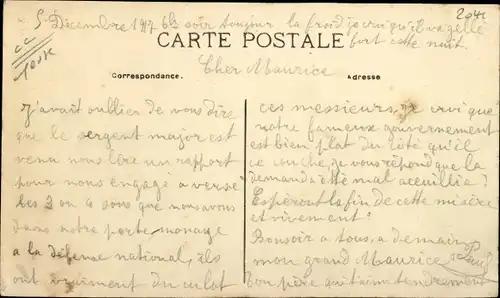 5 Décembre 1917 6h soir toujour la froid je croi qu'il va gelle
fort cette nuit.
CARTE POSTALE
Correspondance.
Adresse
Cher Maurice
J'avait oublier de vous dire
que le sergent major est
venu nous lire un rapport
pour nous engagé a versé
les 3 ou 4 sous que nous avons
dans notre porte monage
a la défense national, ils
ont vraiment du culot
ces messieurs, je croi que
notre fameux gouvernement
est bien plat du côté qu'il
ce couche, je vous répond que la
demande a été mal acceuillie?
Espérons la fin de cette misère
et vivement!
Bonsoir a tous, a demain
mon grand Maurice
Ton père qui t'aime tendrement
Paul